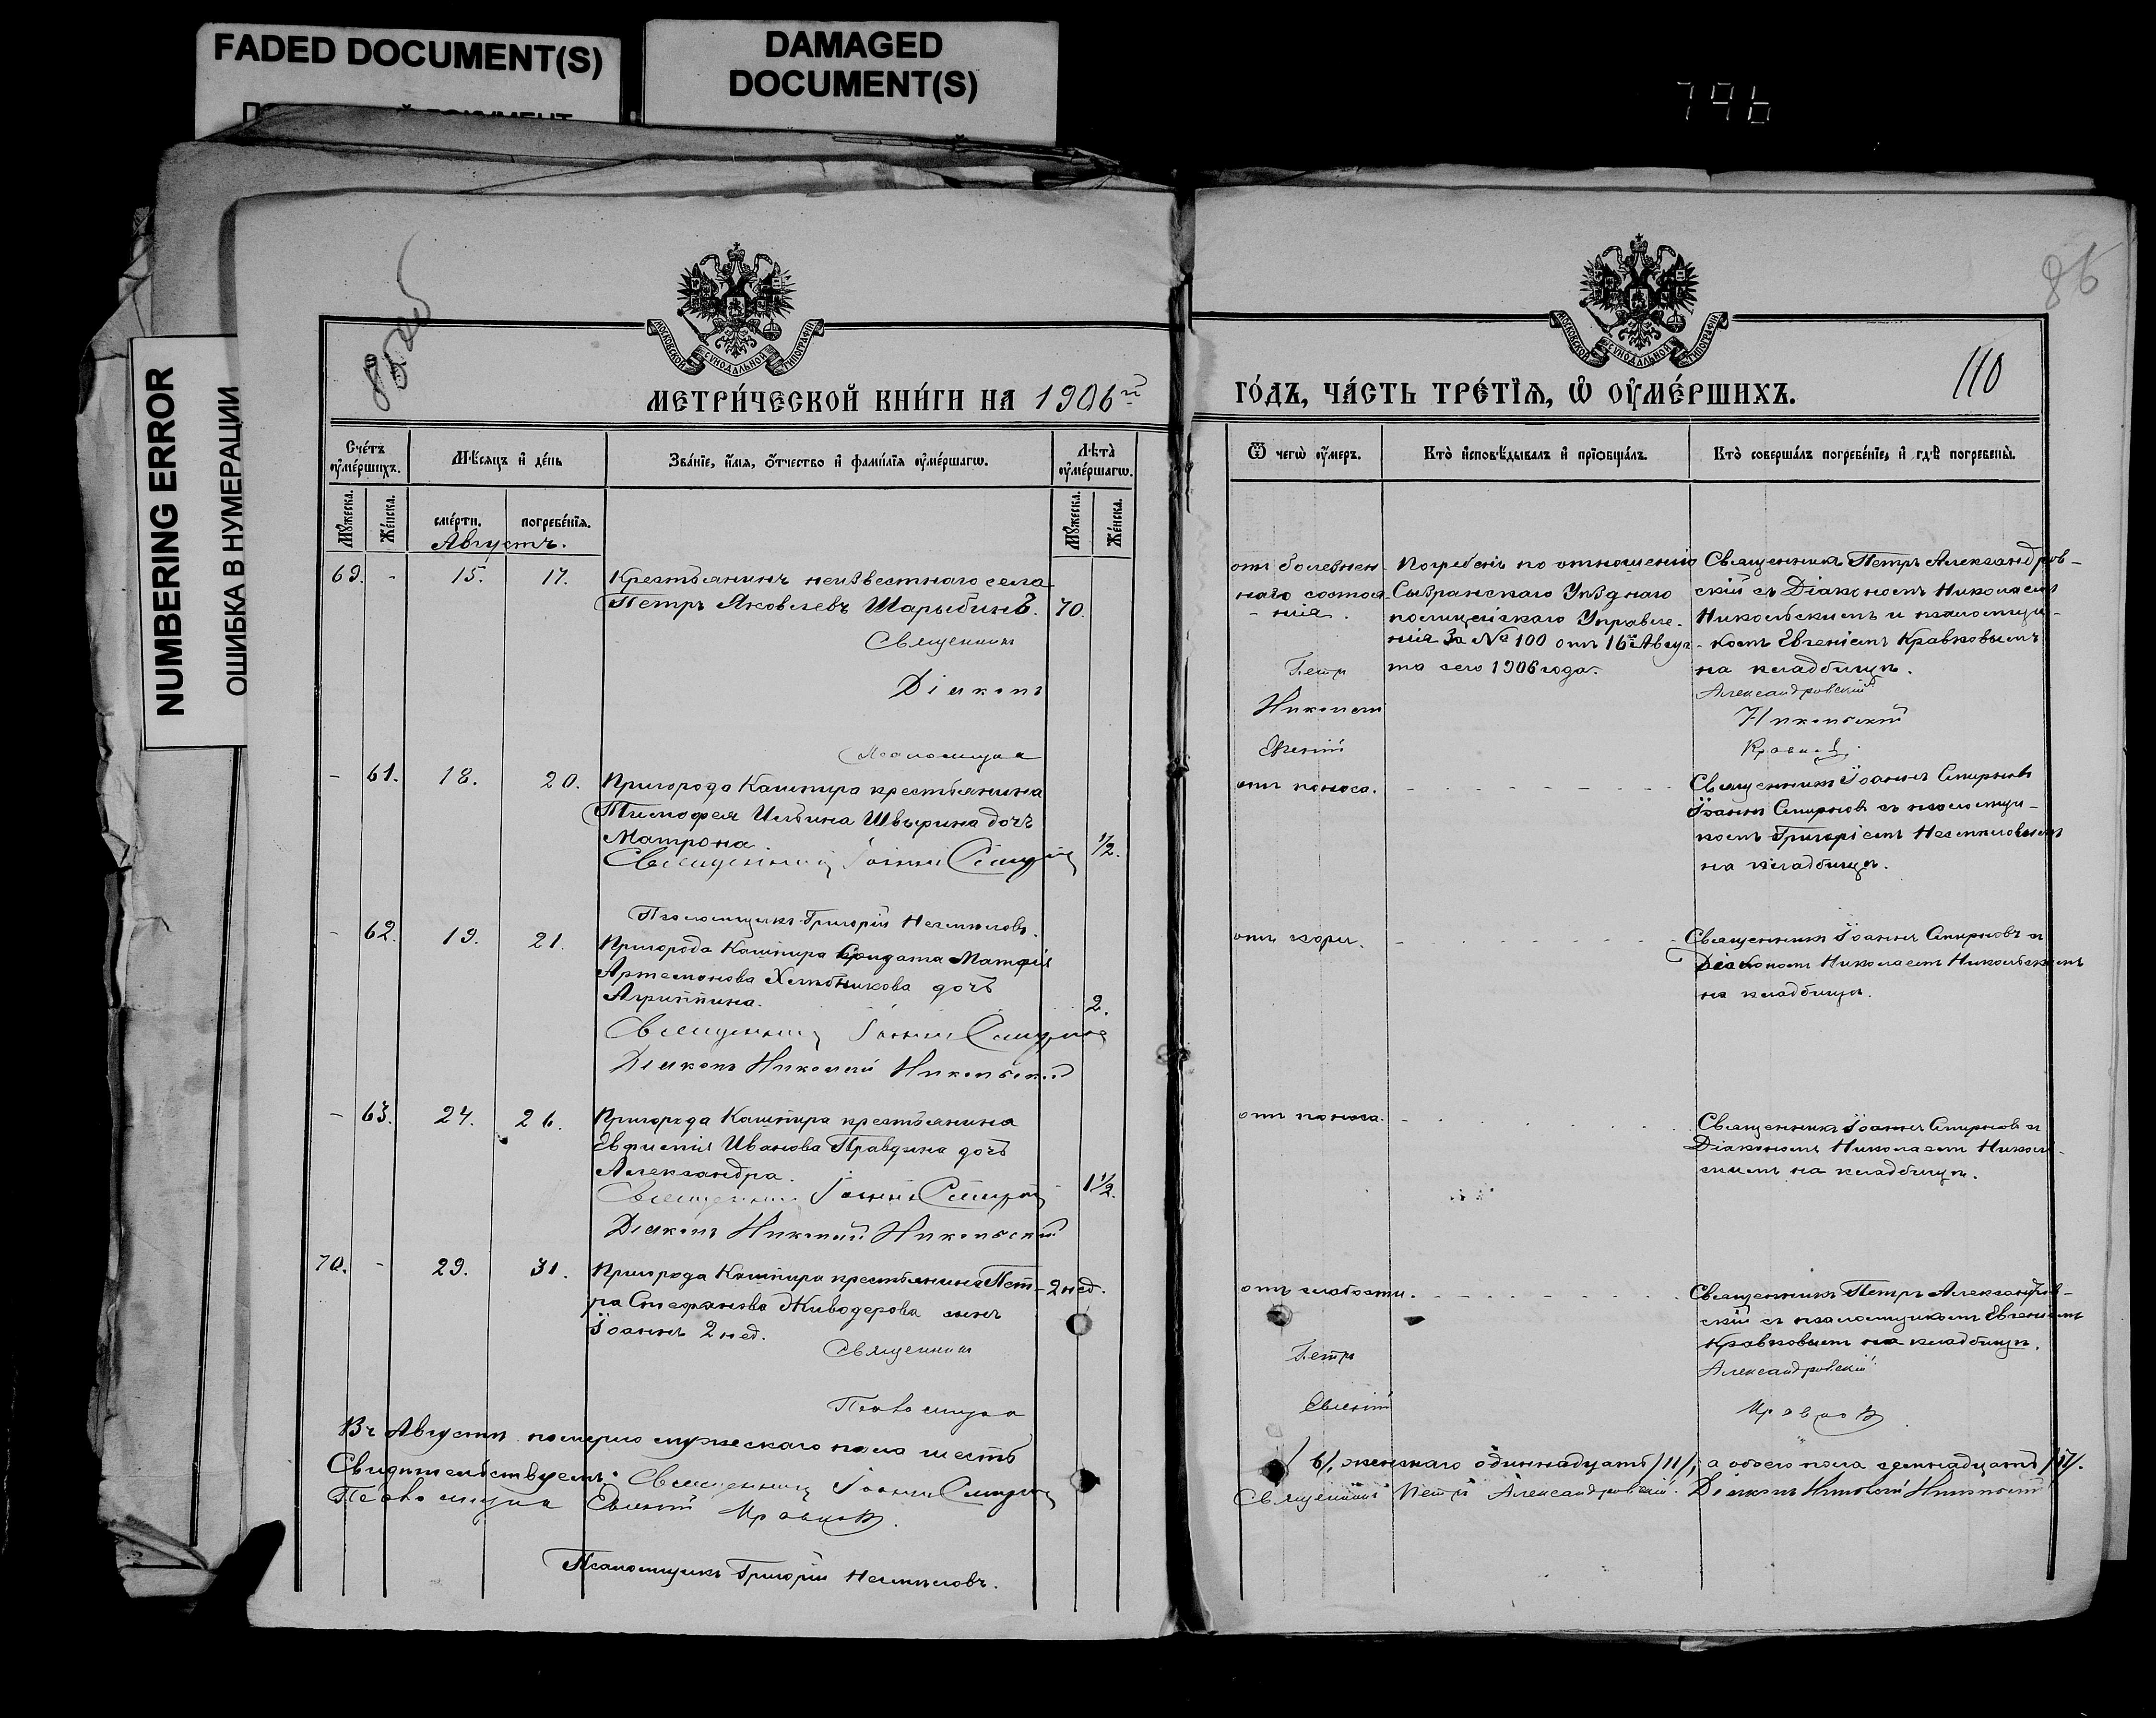 FADED DOCUMENT(S)
DAMAGED
DOCUMENT(S)
NUMBERING ERROR
ОШИБКА В НУМЕРАЦИИ
796
86
110
МОСКОВСКОЙ СѴНОДАЛЬНОЙ ТИПОГРАФІИ
МОСКОВСКОЙ СѴНОДАЛЬНОЙ ТИПОГРАФІИ
МЕТРИ́ЧЕСКОЙ КНИ́ГИ НА 1906й
ГО́ДЪ, ЧА́СТЬ ТРЕ́ТІѦ, Ѡ ОУ҆МЕ́РШИХЪ.
Сче́тъ оу҆ме́ршихъ.
Мѣ́сяцъ и҆ де́нь
Зва́нїе, и҆́мѧ, ѻ҆́тчество и҆ фами́лїѧ оу҆ме́ршагѡ.
Лѣ́та оу҆ме́ршагѡ.
Мꙋ́жеска.
Же́нска.
сме́рти.
погребе́нїѧ.
Мꙋ́жеска.
Же́нска.
Ѿ чегѡ̀ оу҆́меръ.
Кто̀ и҆сповѣ́дывалъ и҆ прїѡбща́лъ.
Кто̀ соверша́лъ погребе́нїе, и҆ гдѣ̀ погребены̀.
Августъ.
69. - 15. 17. Крестьянинъ неизвестнаго села
Петръ Яковлевъ Шарыбинъ. 70.
Священникъ
Діаконъ
Псаломщикъ
отъ болезнен-
наго состоя-
нія.
Петръ
Николай
Евгеній
Погребенъ по отношенію
Сызранскаго Уѣзднаго
полицейскаго Управле-
нія За № 100 отъ 16го Авгус-
та сего 1906 года.
Священникъ Петръ Александров-
скій съ Діакономъ Николаемъ
Никольскимъ и псаломщи-
комъ Евгеніемъ Кравковымъ
на кладбищѣ.
Александровскій
Никольскій
Кравковъ
- 61. 18. 20. Пригорода Кашпира крестьянина
Тимофея Ильина Швырина дочь
Матрона. 1/2.
Священникъ Іоаннъ Смирновъ
Псаломщикъ Григорій
отъ поноса.
Священникъ Іоаннъ Смирновъ
Іоаннъ Смирновъ съ псаломщи-
комъ Григоріемъ
на кладбищѣ.
- 62. 19. 21. Пригорода Кашпира Солдата Матфія
Артемонова Хлѣбникова дочь
Агриппина. 2.
Священникъ Іоаннъ Смирновъ
Діаконъ Николай Никольскій
отъ кори.
Священникъ Іоаннъ Смирновъ съ
Діакономъ Николаемъ Никольскимъ
на кладбищѣ.
- 63. 24. 26. Пригорода Кашпира крестьянина
Евфимія Иванова Правдина дочь
Александра. 1 1/2.
Священникъ Іоаннъ Смирновъ
Діаконъ Николай Никольскій
отъ поноса.
Священникъ Іоаннъ Смирновъ съ
Діакономъ Николаемъ Николь-
скимъ на кладбищѣ.
70. - 29. 31. Пригорода Кашпира крестьянина Пет- 2 нед.
ра Стефанова Живодерова сынъ
Іоаннъ 2 нед.
Священникъ
Псаломщикъ
отъ слабости.
Петръ
Евгеній
Священникъ Петръ Александров-
скій съ псаломщикомъ Евгеніемъ
Кравковымъ на кладбищѣ.
Александровскій
Кравковъ
Въ Августѣ померло мужескаго пола шесть
/6/, женскаго одиннадцать /11/, а обоего пола семнадцать /17/.
Свидѣтельствуемъ: Священникъ Іоаннъ Смирновъ
Священникъ Петръ Александровскій. Діаконъ Николай Никольскій
Псаломщикъ Евгеній Кравковъ.
Псаломщикъ Григорій